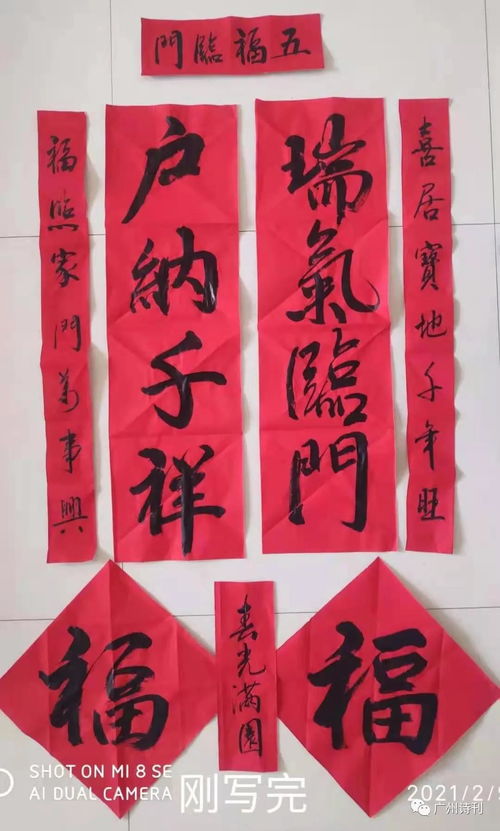 五福臨門
喜居寶地千年旺
瑞氣臨門
户納千祥
福照家門萬事興
福
春光滿園
福
SHOT ON MI 8 SE
AI DUAL CAMERA
刚写完
2021/2/
广州诗刊